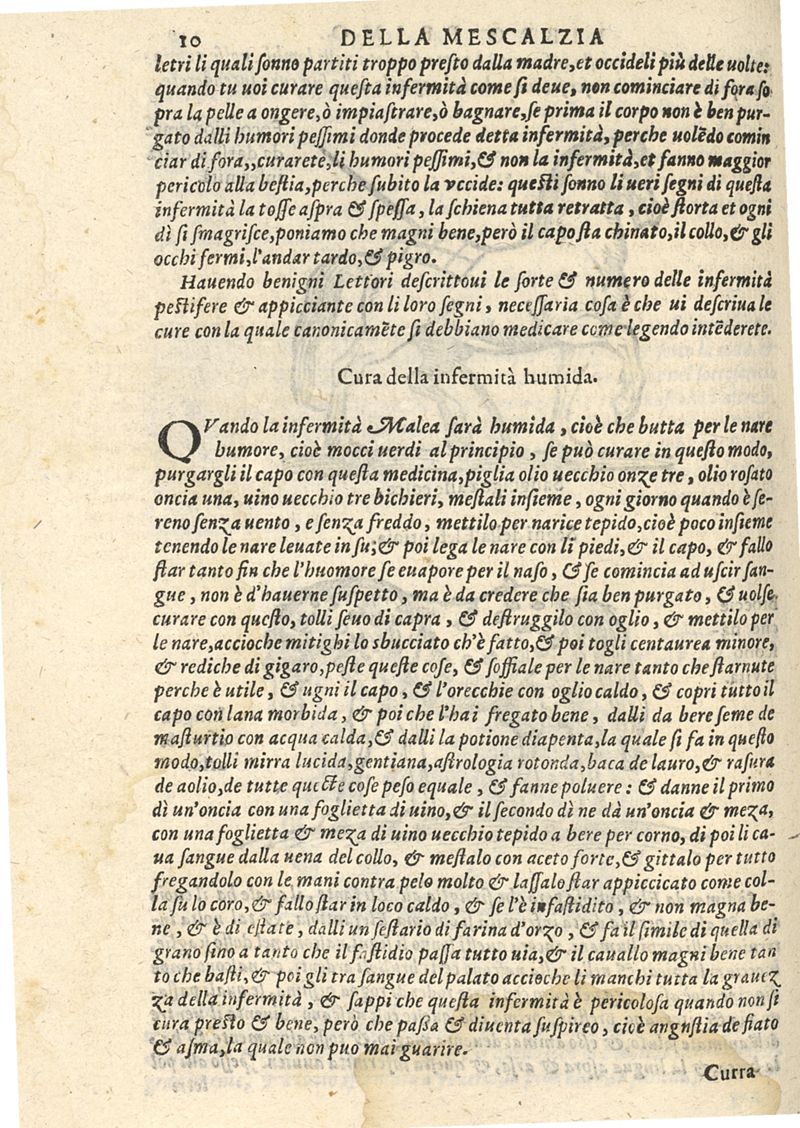 10 DELLA MESCALZIA
letri li quali ſonno partiti troppo preſto dalla madre,et occideli più delle uolte:
quando tu uoi curare queſta infermità come ſi deue, non cominciare di fora ſo
pra la pelle a ongere,ò impiaſtrare,ò bagnare,ſe prima il corpo non è ben pur-
gato dalli humori peſſimi donde procede detta infermità, perche uolēdo comin
ciar di fora,,curarete,li humori peſſimi,& non la infermità,et fanno maggior
pericolo alla beſtia,perche ſubito la vccide: queſti ſonno li ueri ſegni di queſta
infermità la toſſe aſpra & ſpeſſa, la ſchiena tutta retratta, cioè ſtorta et ogni
dì ſi ſmagriſce,poniamo che magni bene,però il capo ſta chinato,il collo,& gli
occhi fermi,l'andar tardo,& pigro.
Hauendo benigni Lettori deſcrittoui le ſorte & numero delle infermità
peſtifere & appicciante con li loro ſegni, neceſſaria coſa è che ui deſcriua le
cure con la quale canonicamēte ſi debbiano medicare come legendo intēderete.
Cura della infermità humida.
QVando la infermità Malea ſarà humida, cioè che butta per le nare
humore, cioè mocci uerdi al principio, ſe può curare in queſto modo,
purgargli il capo con queſta medicina,piglia olio uecchio onze tre, olio roſato
oncia una, uino uecchio tre bichieri, meſtali inſieme, ogni giorno quando è ſe-
reno ſenza uento, e ſenza freddo, mettilo per narice tepido,cioè poco inſieme
tenendo le nare leuate in ſu;& poi lega le nare con li piedi,& il capo, & fallo
ſtar tanto fin che l'huomore ſe euapore per il naſo, & ſe comincia ad uſcir ſan-
gue, non è d'hauerne ſuſpetto, ma è da credere che ſia ben purgato, & uolſe
curare con queſto, tolli ſeuo di capra, & deſtruggilo con oglio, & mettilo per
le nare,accioche mitighi lo sbucciato ch'è fatto,& poi togli centaurea minore,
& rediche di gigaro,peſte queſte coſe, & ſoffiale per le nare tanto che ſtarnute
perche è utile, & ugni il capo, & l'orecchie con oglio caldo, & copri tutto il
capo con lana morbida, & poi che l'hai fregato bene, dalli da bere ſeme de
maſturtio con acqua calda,& dalli la potione diapenta,la quale ſi fa in queſto
modo,tolli mirra lucida,gentiana,aſtrologia rotonda, baca de lauro,& raſura
de aolio, de tutte queſte coſe peſo equale, & fanne poluere: & danne il primo
dì un'oncia con una foglietta di uino,& il ſecondo dì ne dà un'oncia & meza,
con una foglietta & meza di uino uecchio tepido a bere per corno, di poi li ca-
ua ſangue dalla uena del collo, & meſtalo con aceto forte,& gittalo per tutto
fregandolo con le mani contra pelo molto & laſſalo ſtar appiccicato come col-
la ſu lo coro, & fallo ſtar in loco caldo, & ſe l'è infaſtidito, & non magna be-
ne, & è di eſtate, dalli un ſeſtario di farina d'orzo, & fa il ſimile di quella di
grano ſino a tanto che il faſtidio paſſa tutto uia,& il cauallo magni bene tan
to che baſti,& poi gli tra ſangue del palato accioche li manchi tutta la grauez
za della infermità, & ſappi che queſta infermità è pericoloſa quando non ſi
cura preſto & bene, però che paſſa & diuenta ſuſpireo, cioè anguſtia de fiato
& aſma,la quale non puo mai guarire.
Curra